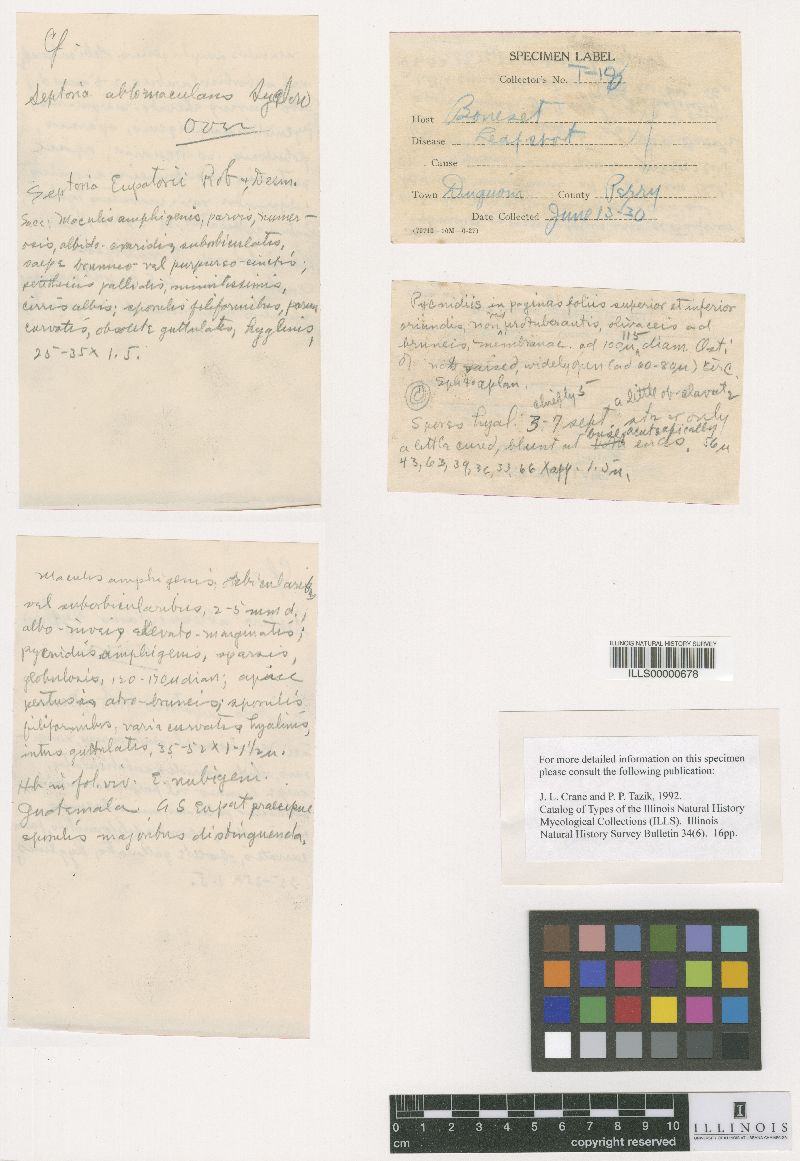 Cf.
Septoria albomaculans Sydow
over
Septoria Eupatorii Rob & Desm.
Sacc: Maculis amphigenis, parvis, numer-
osis, albido- suborbiculatis,
saepe brunneo- vel purpureo-cinctis;
peritheciis pallidis, minutissimis,
cirris albis; sporulis filiformibus, parum
curvatis, obsolete guttulatis, hyalinis,
25-35 x 1.5.
SPECIMEN LABEL
Collector's No. T-196
Host Boneset
Disease Leafspot
Cause
Town Duquoin County Perry
Date Collected June 13-30
(79710—10M—6-27)
Pycnidiis in paginas foliis superior et inferior
oriundis, non protuberantis, olivaceis ad
bruneis, membranac. ad 100u, 115 diam. Ost.
not raised, widely open (ad 60-80u) circ.
chiefly 5 a little ob-clavate
Spores hyal. 3-7 sept str or only
a little curved, blunt at base, acute apically 56u
43, 63, 39, 36, 33, 66 x app. 1.5u.
Maculis amphigenis, orbicularib
vel suborbicularibus, 2-5 mm d.,
albo-niveis, elevato-marginatis;
pycnidiis amphigenis, sparsis,
globulosis, 120-170u diam; apice
pertusis atro-bruneis; sporulis
filiformibus, varie curvatis hyalinis,
intus guttulatis, 35-52 x 1-1½u.
Hb in fol. viv. E. nubigeni.
Guatemala. A S. Eupat praecipue
sporulis majoribus distinguenda.
ILLINOIS NATURAL HISTORY SURVEY
ILLS00000678
For more detailed information on this specimen
please consult the following publication:
J. L. Crane and P. P. Tazik, 1992.
Catalog of Types of the Illinois Natural History
Mycological Collections (ILLS). Illinois
Natural History Survey Bulletin 34(6). 16pp.
0 1 2 3 4 5 6 7 8 9 10
cm
copyright reserved
I
ILLINOIS
UNIVERSITY OF ILLINOIS AT URBANA-CHAMPAIGN